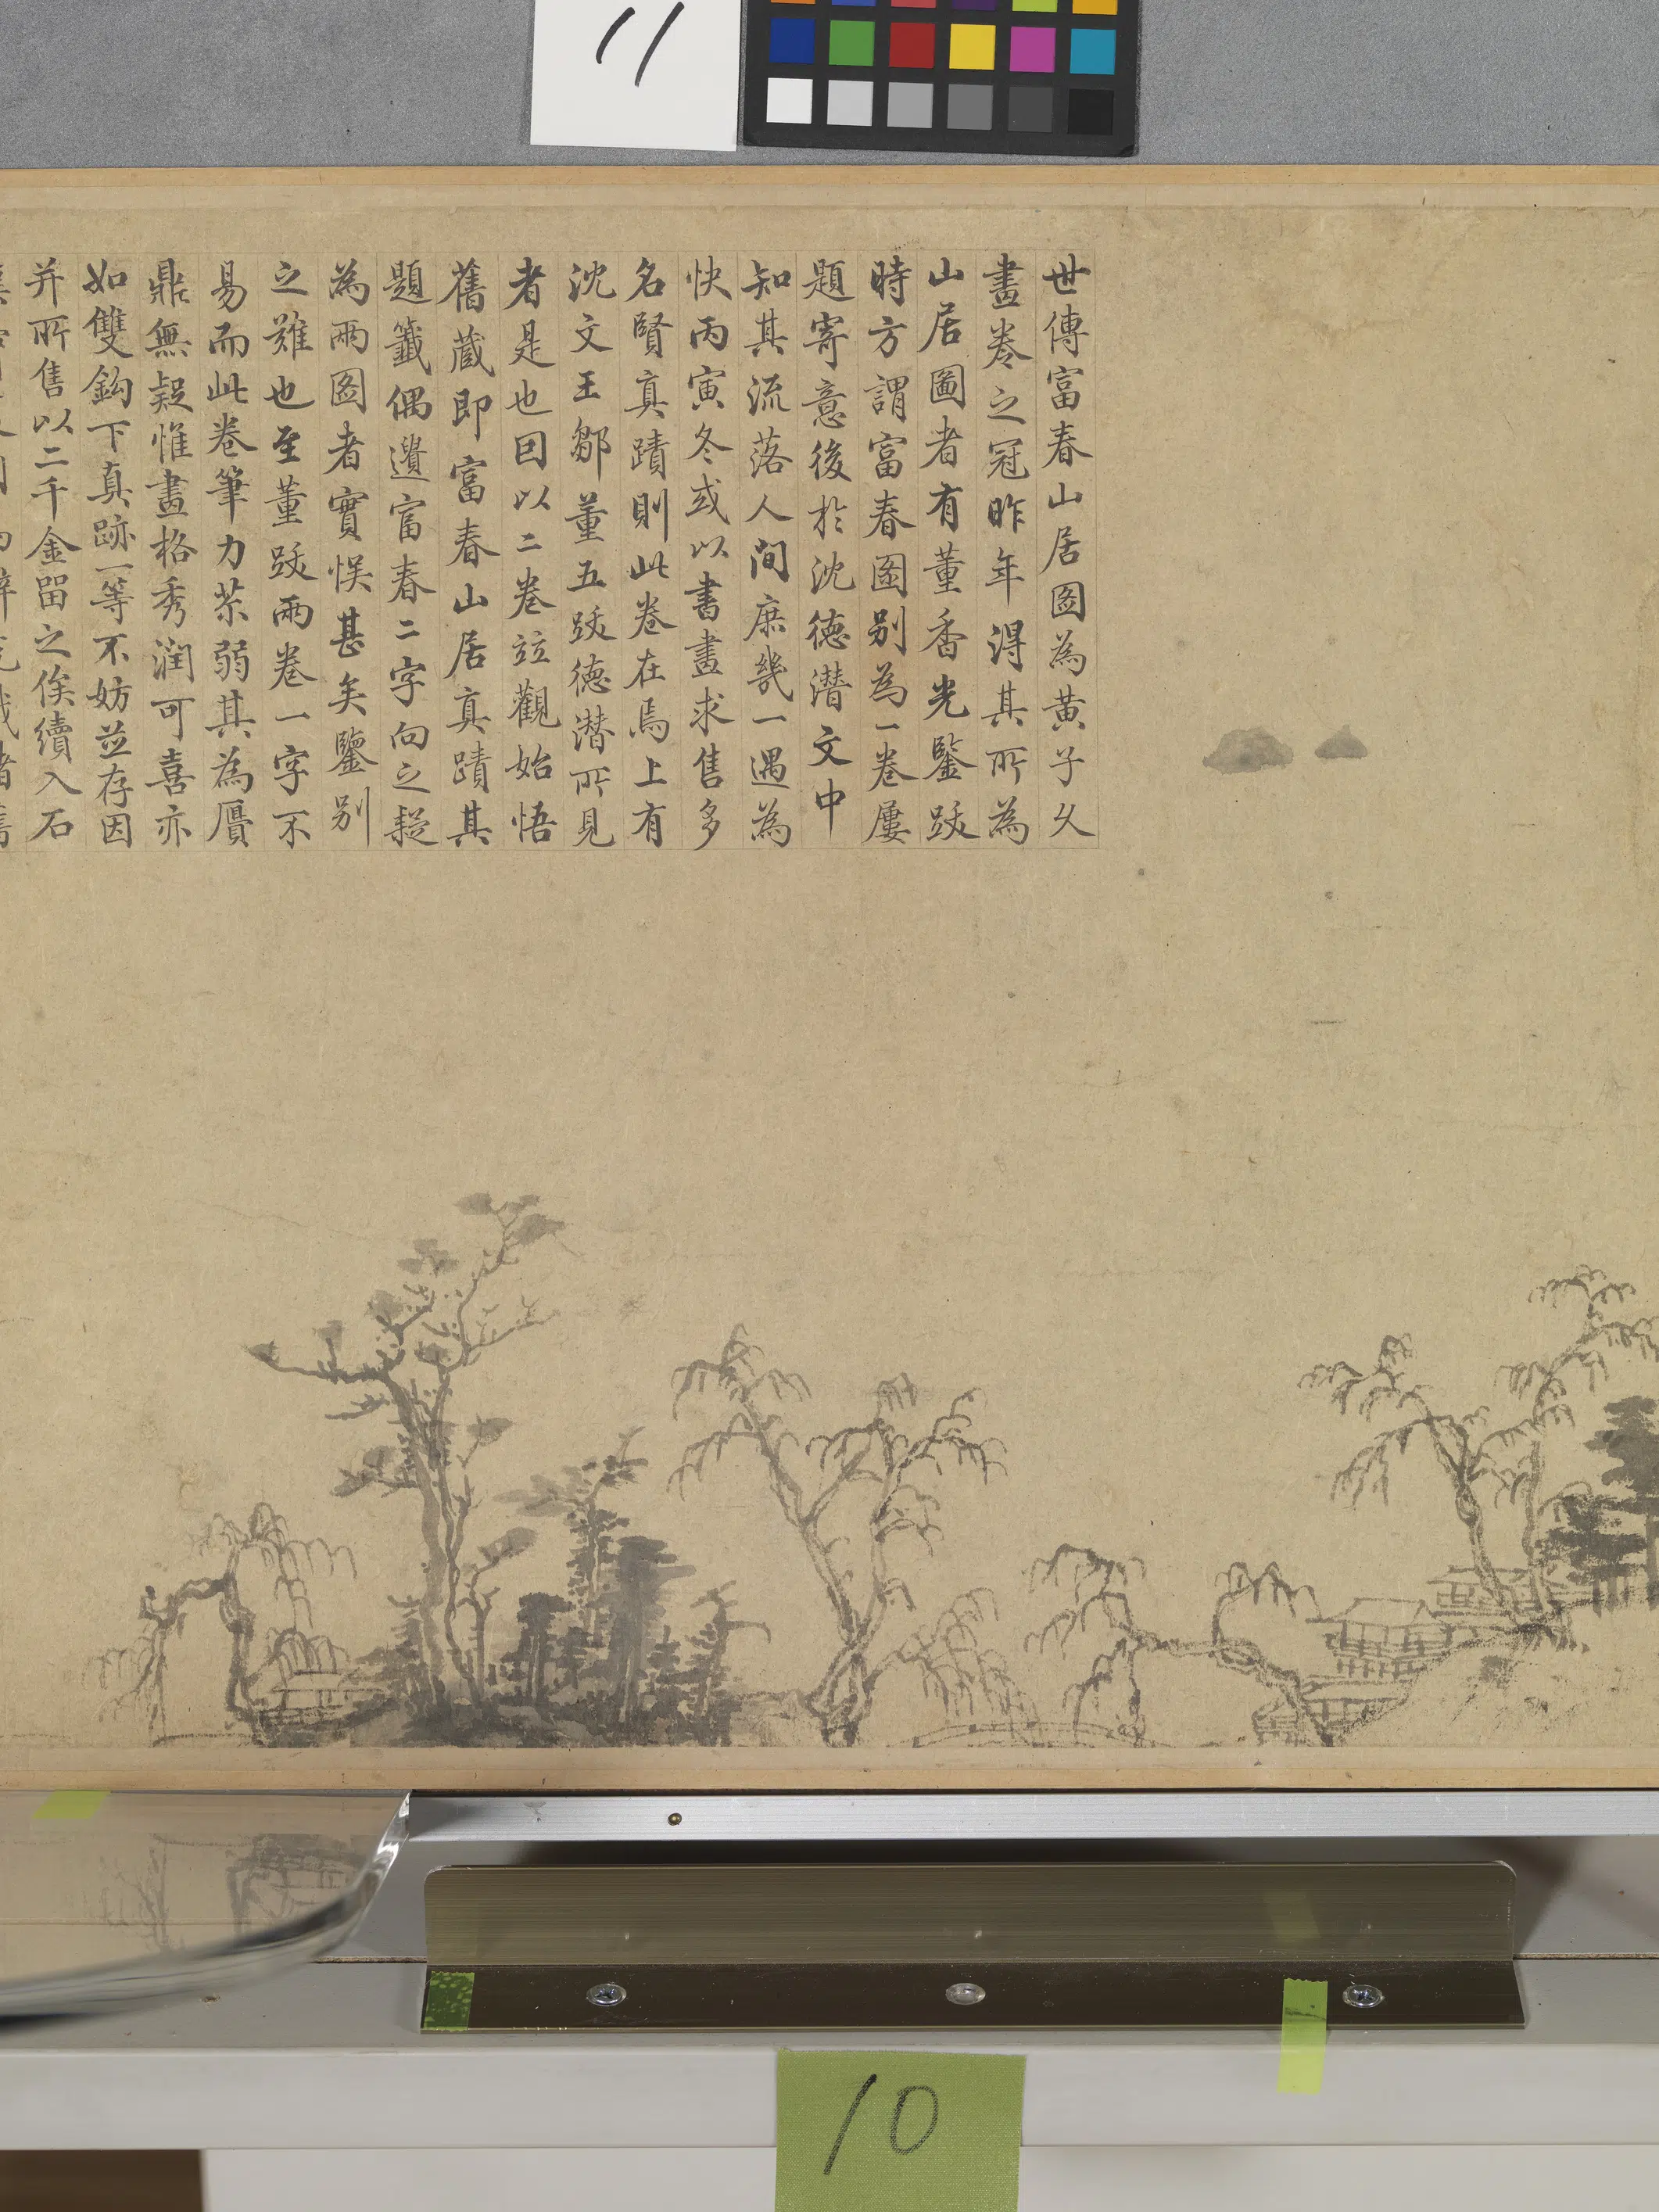 11
世傳富春山居圖為黃子久
畫卷之冠昨年得其所為
山居圖者有董香光鑒跋
時方謂富春圖別為一卷屢
題寄意後於沈德潛文中
知其流落人間庶幾一遇為
快丙寅冬或以書畫求售多
名賢真蹟則此卷在焉上有
沈文王鄒董五跋德潛所見
者是也因以二卷竝觀始悟
舊藏即富春山居真蹟其
題籤偶遺富春二字向之疑
為兩圖者實悮甚矣鑒別
之難也至董跋兩卷一字不
易而此卷筆力苶弱其為贗
鼎無疑惟畫格秀潤可喜亦
如雙鈎下真跡一等不妨並存因
并所售以二千金留之俟續入石
10